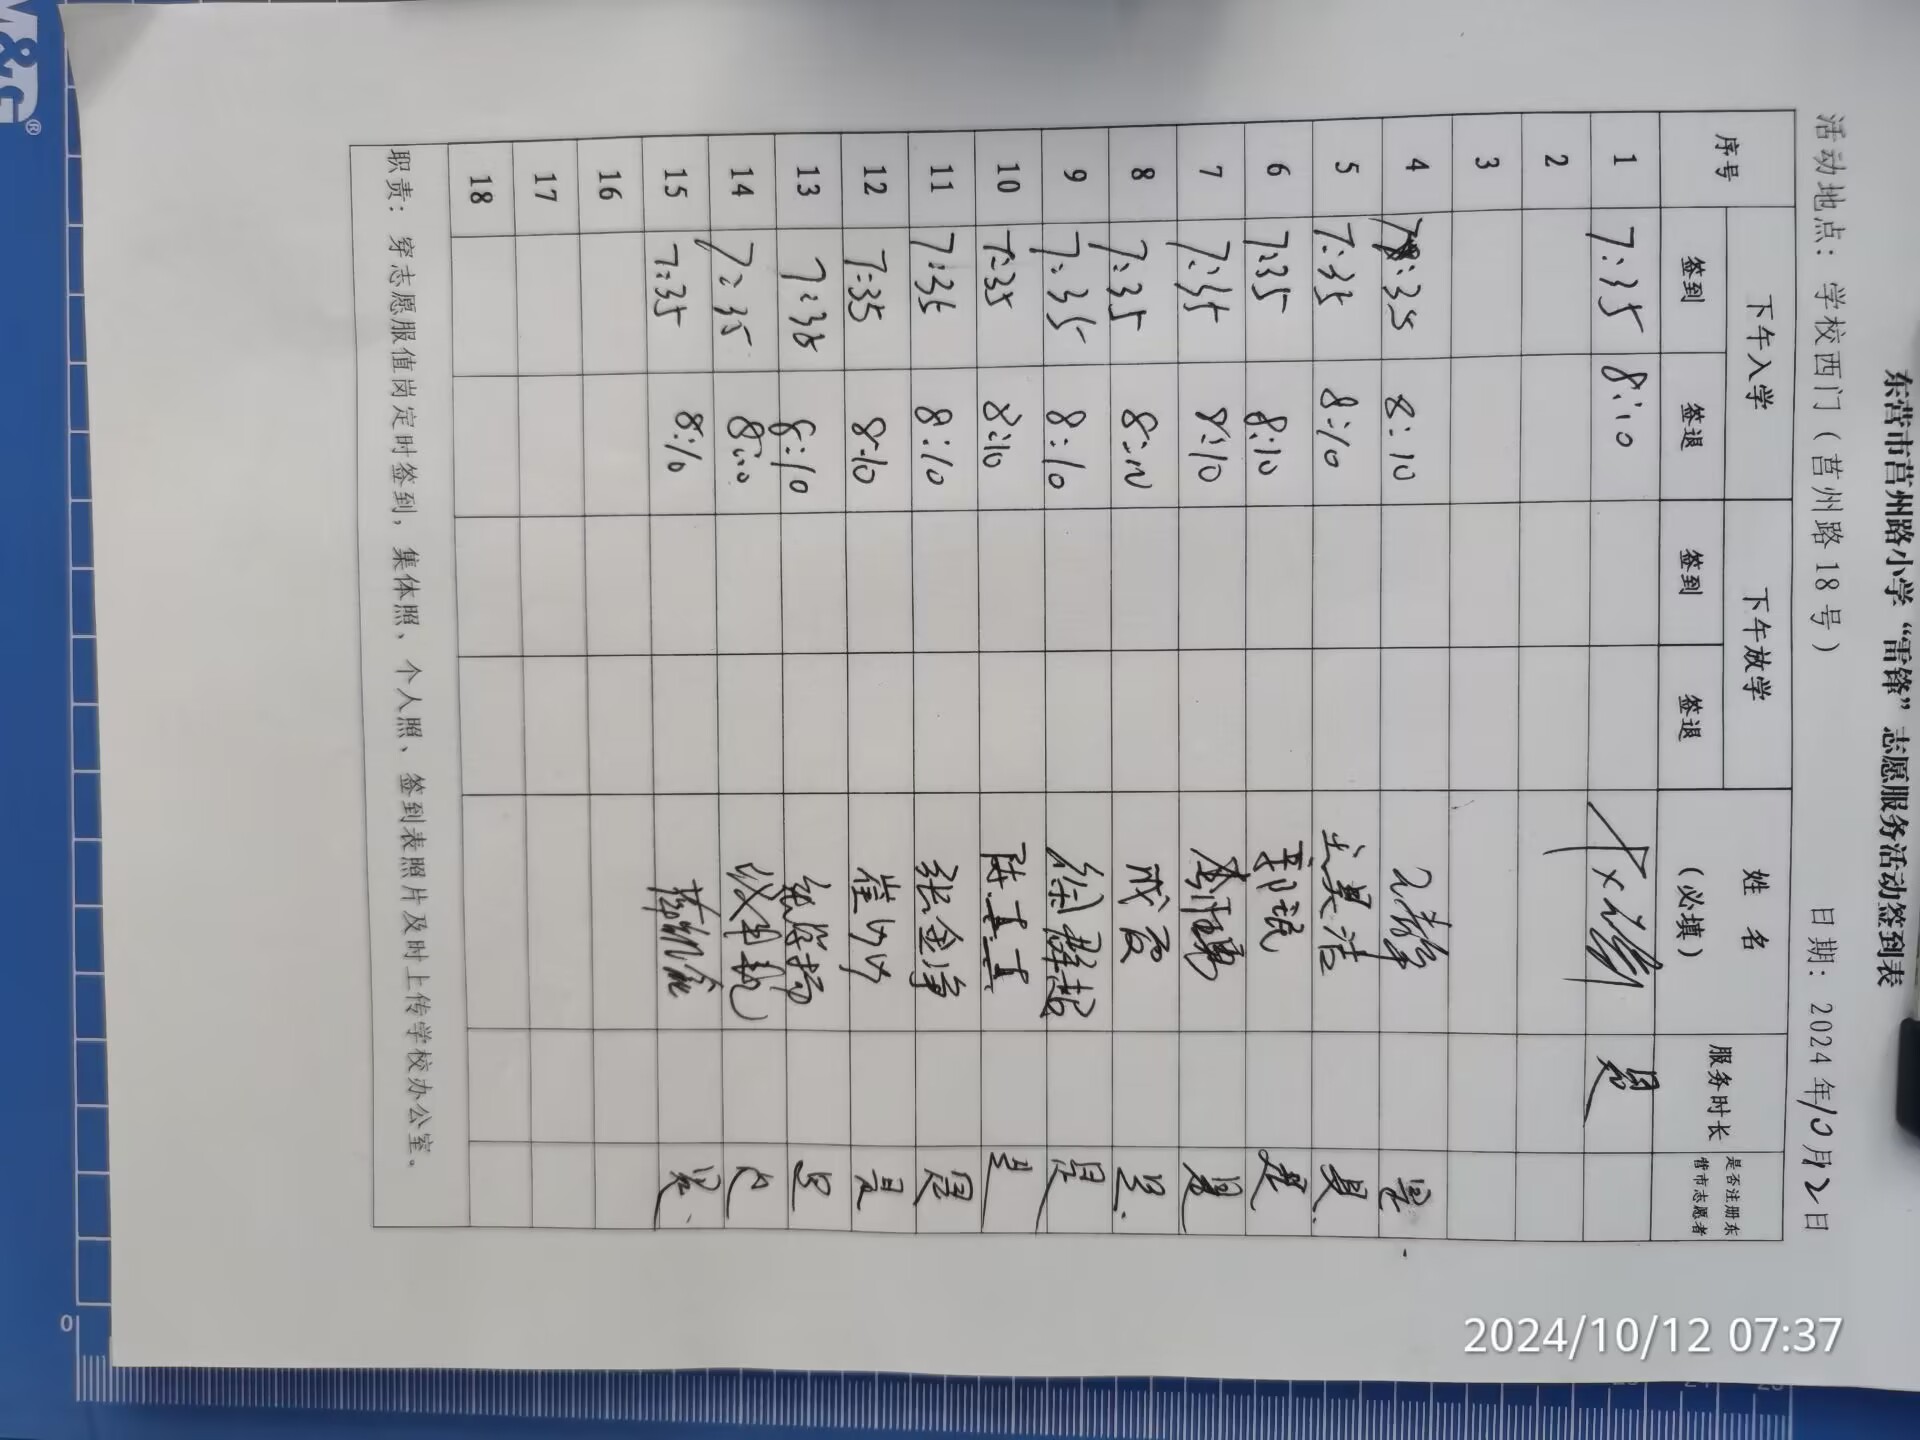 东营市莒州路小学“雷锋”志愿服务活动签到表
活动地点：学校西门（莒州路18号） 日期：2024年10月12日
序号 下午入学 下午放学 姓名（必填） 服务时长 是否注册东营市志愿者
签到 签退 签到 签退
1 7:35 8:10 是
2
3
4 7:35 8:10 是
5 7:35 8:10 是
6 7:35 8:10 是
7 7:35 8:10 是
8 7:35 8:10 成霞 是
9 7:35 8:10 徐群超 是
10 7:35 8:10 陈王王 是
11 7:35 8:10 张金净 是
12 7:35 8:10 崔 是
13 7:35 8:10 是
14 7:35 8:10
15 7:35 8:10 是
16
17
18
职责：穿志愿服值岗定时签到，集体照、个人照、签到表照片及时上传学校办公室。
M&G®
0
2024/10/12 07:37